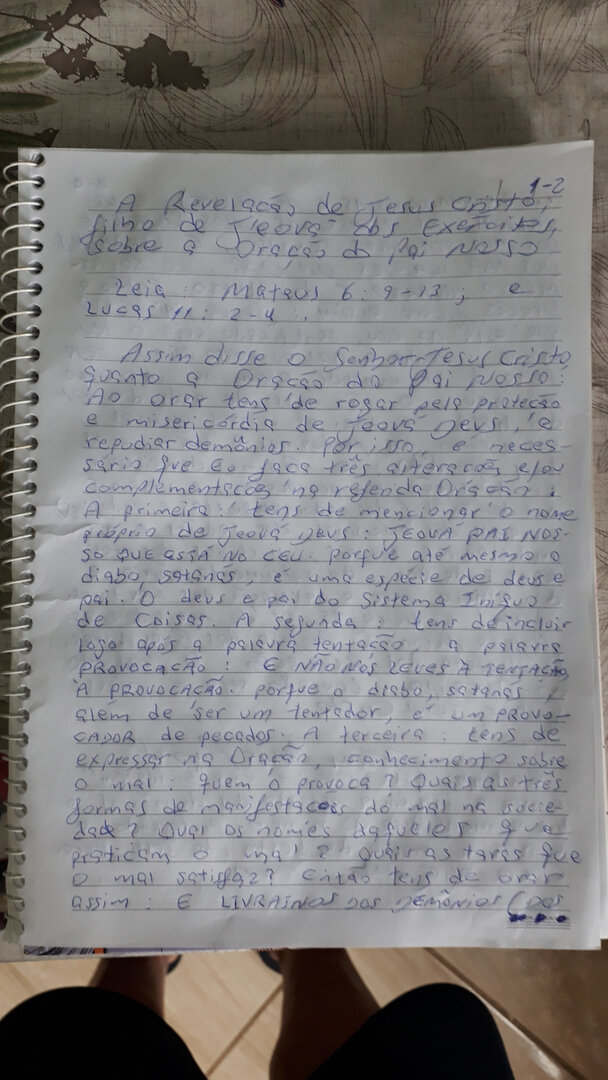 1-2
A Revelação de Jesus Cristo,
filho de Jeová dos Exércitos,
sobre a Oração do Pai Nosso
Leia: Mateus 6: 9-13; e
Lucas 11: 2-4.
Assim disse o Senhor Jesus Cristo
quanto a Oração do Pai Nosso:
Ao orar tens de rogar pela proteção
e misericórdia de Jeová Deus, e
repudiar demônios. Por isso, é neces-
sário que eu faça três alterações e/ou
complementações na referida Oração:
A primeira: tens de mencionar o nome
próprio de Jeová Deus: JEOVÁ PAI NOS-
SO QUE ASSÁ NO CEU. porque até mesmo o
diabo, satanás, é uma espécie de deus e
pai. O deus e pai do Sistema Iníquo
de Coisas. A segunda: tens de incluir
logo após a palavra tentação, a palavra
PROVOCAÇÃO: E NÃO NOS LEVES À TENTAÇÃO,
À PROVOCAÇÃO. porque o diabo, satanás,
além de ser um tentador, é um PROVO-
CADOR de pecados. A terceira: tens de
expressar na Oração, conhecimento sobre
o mal: quem o provoca? Quais as três
formas de manifestações do mal na socie-
dade? Qual os nomes daqueles que
praticam o mal? quais as taras que
o mal satisfaz? Então tens de orar
assim: E LIVRAINOS DOS DEMÔNIOS (DOS
...